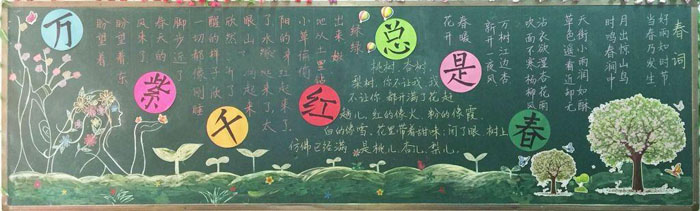 万
紫
千
红
总
是
春
春词
好雨知时节
当春乃发生
月出惊山鸟
时鸣春涧中
天街小雨润如酥
草色遥看近却无
沾衣欲湿杏花雨
吹面不寒杨柳风
万树江边杏
新开一夜风
春暖
花开
盼望着
盼望着东
风来了
春天的
脚步近
一切都像刚睡
醒的样子欣
欣然
了水涨起来了太
阳的
起来了
小草偷偷
地从土里钻
出来嫩
绿绿
桃树、杏树、
梨树，你不让我，我
不让你，都开满了花赶
趟儿。红的像火，粉的像霞，
白的像雪。花里带着甜味，闭了眼，树上
仿佛已经满是桃儿、杏儿、梨儿。